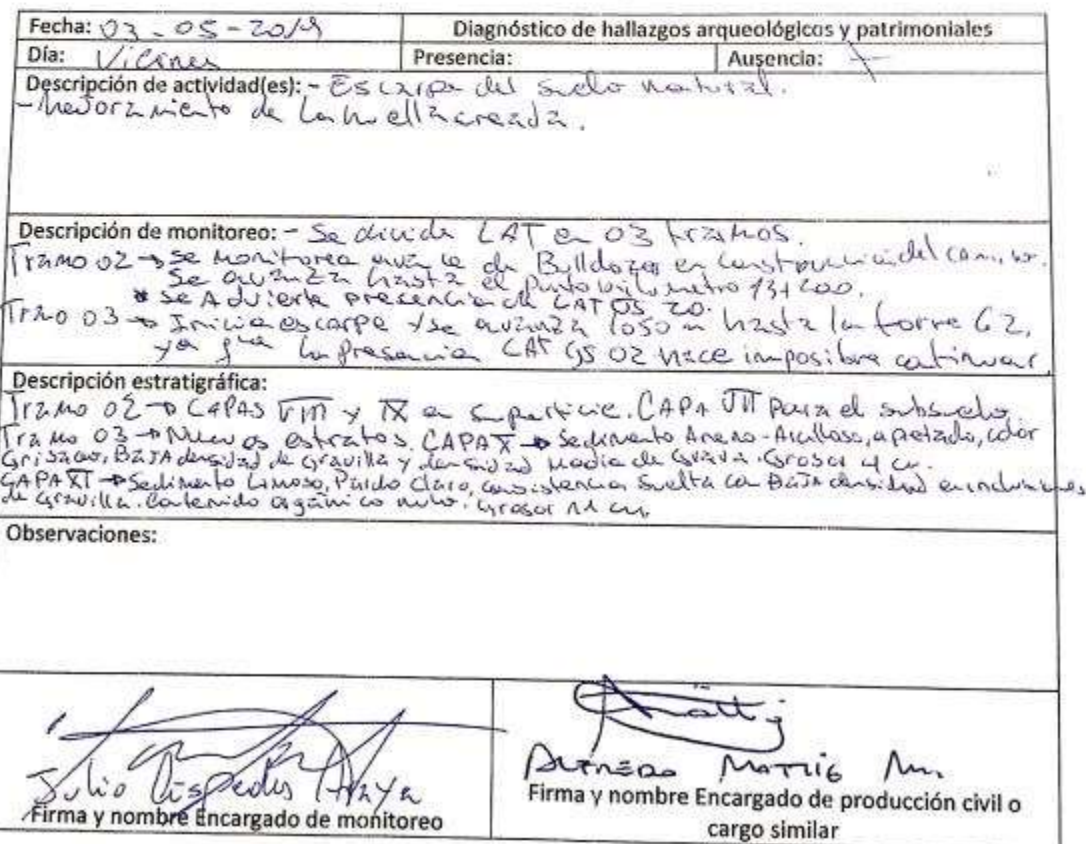 Fecha: 03-05-2019
Diagnóstico de hallazgos arqueológicos y patrimoniales
Día: Viernes
Presencia:
Ausencia: +
Descripción de actividad(es): - Escarpe del suelo natural.
- Mejoramiento de la huella creada.
Descripción de monitoreo: - Se divide LAT en 03 tramos.
Tramo 02 → Se monitorea avance de Bulldozer en construcción del camino.
Se avanza hasta el punto kilometro 131200.
* Se Advierte presencia de LAT GS 20.
Tramo 03 → Inicia escarpe y se avanza 1050 m hasta la torre 62,
ya que la presencia LAT GS 02 hace imposible continuar.
Descripción estratigráfica:
Tramo 02 → CAPAS VIII y IX en superficie. CAPA VII para el subsuelo.
Tramo 03 → Nuevos estratos. CAPA X → Sedimento Areno-Arcilloso, apretado, color
Grisaceo, BAJA densidad de gravilla y densidad Media de Grava. Grosor 4 cm.
CAPA XI → Sedimento Limoso, Pardo Claro, consistencia Suelta con BAJA densidad en inclusiones
de gravilla. Contenido orgánico nulo. Grosor 11 cm.
Observaciones:
Julio Céspedes Araya
Firma y nombre Encargado de monitoreo
ALFREDO MATTIG M.
Firma y nombre Encargado de producción civil o
cargo similar